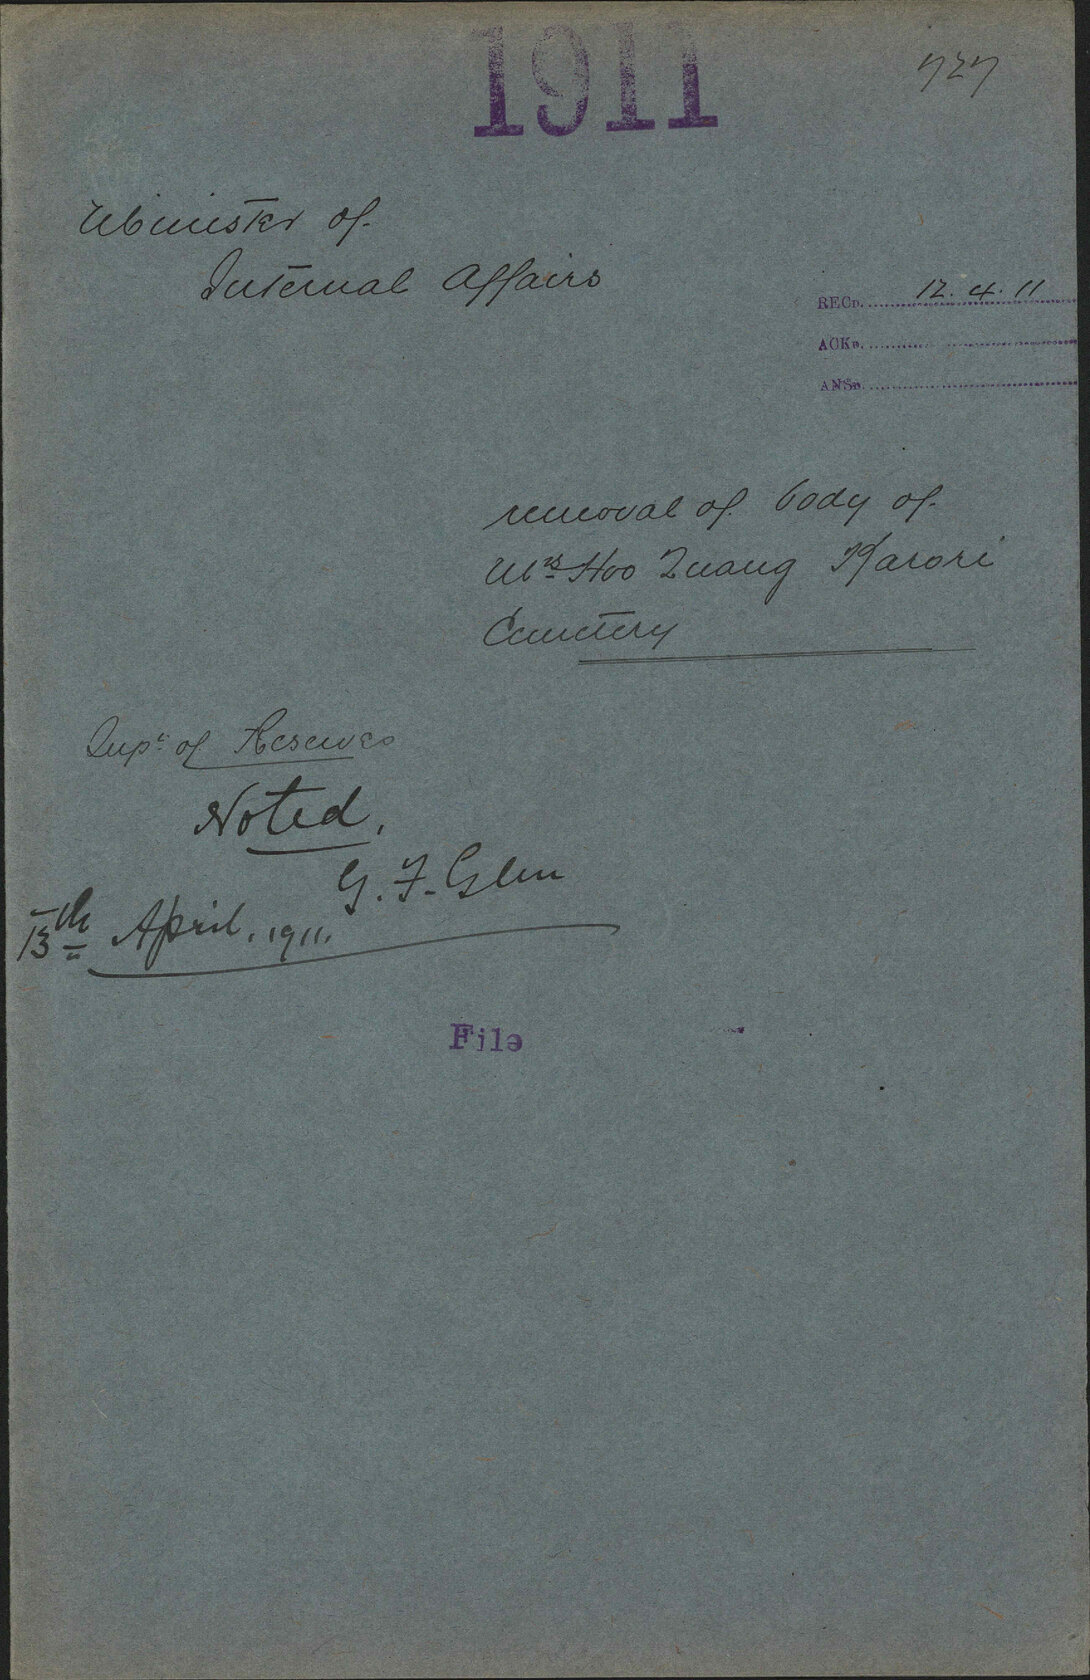 1911
727
Minister of
Internal Affairs
RECD. 12.4.11
ACKD.
ANSD.
removal of body of
Mrs Hoo Quang Karori
Cemetery
Supt of Reserves
Noted.
G. F. Glen
13th April. 1911.
File